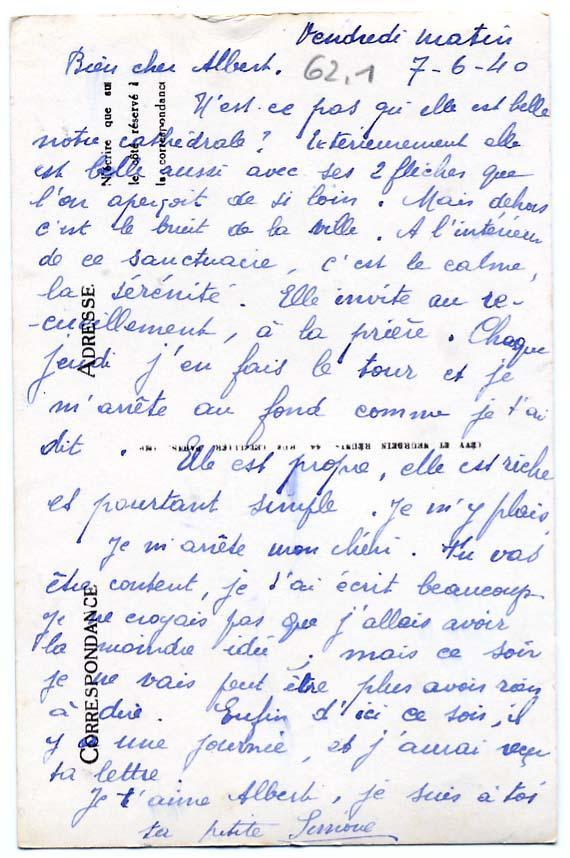 Vendredi matin
Bien cher Albert. 62.1 7-6-40
N'est-ce pas qu'elle est belle
notre cathédrale ? Extérieurement elle
est belle aussi avec ses 2 flèches que
l'on aperçoit de si loin. Mais dehors
c'est le bruit de la ville. A l'intérieur
de ce sanctuaire, c'est le calme,
la sérénité. Elle invite au re-
-cueillement, à la prière. Chaque
jeudi j'en fais le tour et je
m'arrête au fond comme je t'ai
dit. Elle est propre, elle est riche
et pourtant simple. Je m'y plais.
Je m'arrête mon chéri. Tu vas
être content, je t'ai écrit beaucoup.
Je ne croyais pas que j'allais avoir
la moindre idée ; mais ce soir
je ne vais peut être plus avoir rien
à dire. Enfin d'ici ce soir, il
y a une journée, et j'aurai reçu
ta lettre.
Je t'aime Albert, je suis à toi
ta petite Simone
N'écrire que sur
le côté réservé à
la correspondance
ADRESSE
CORRESPONDANCE
LÉVY ET NEURDEIN RÉUNIS, 44, RUE LETELLIER, PARIS. IMP.